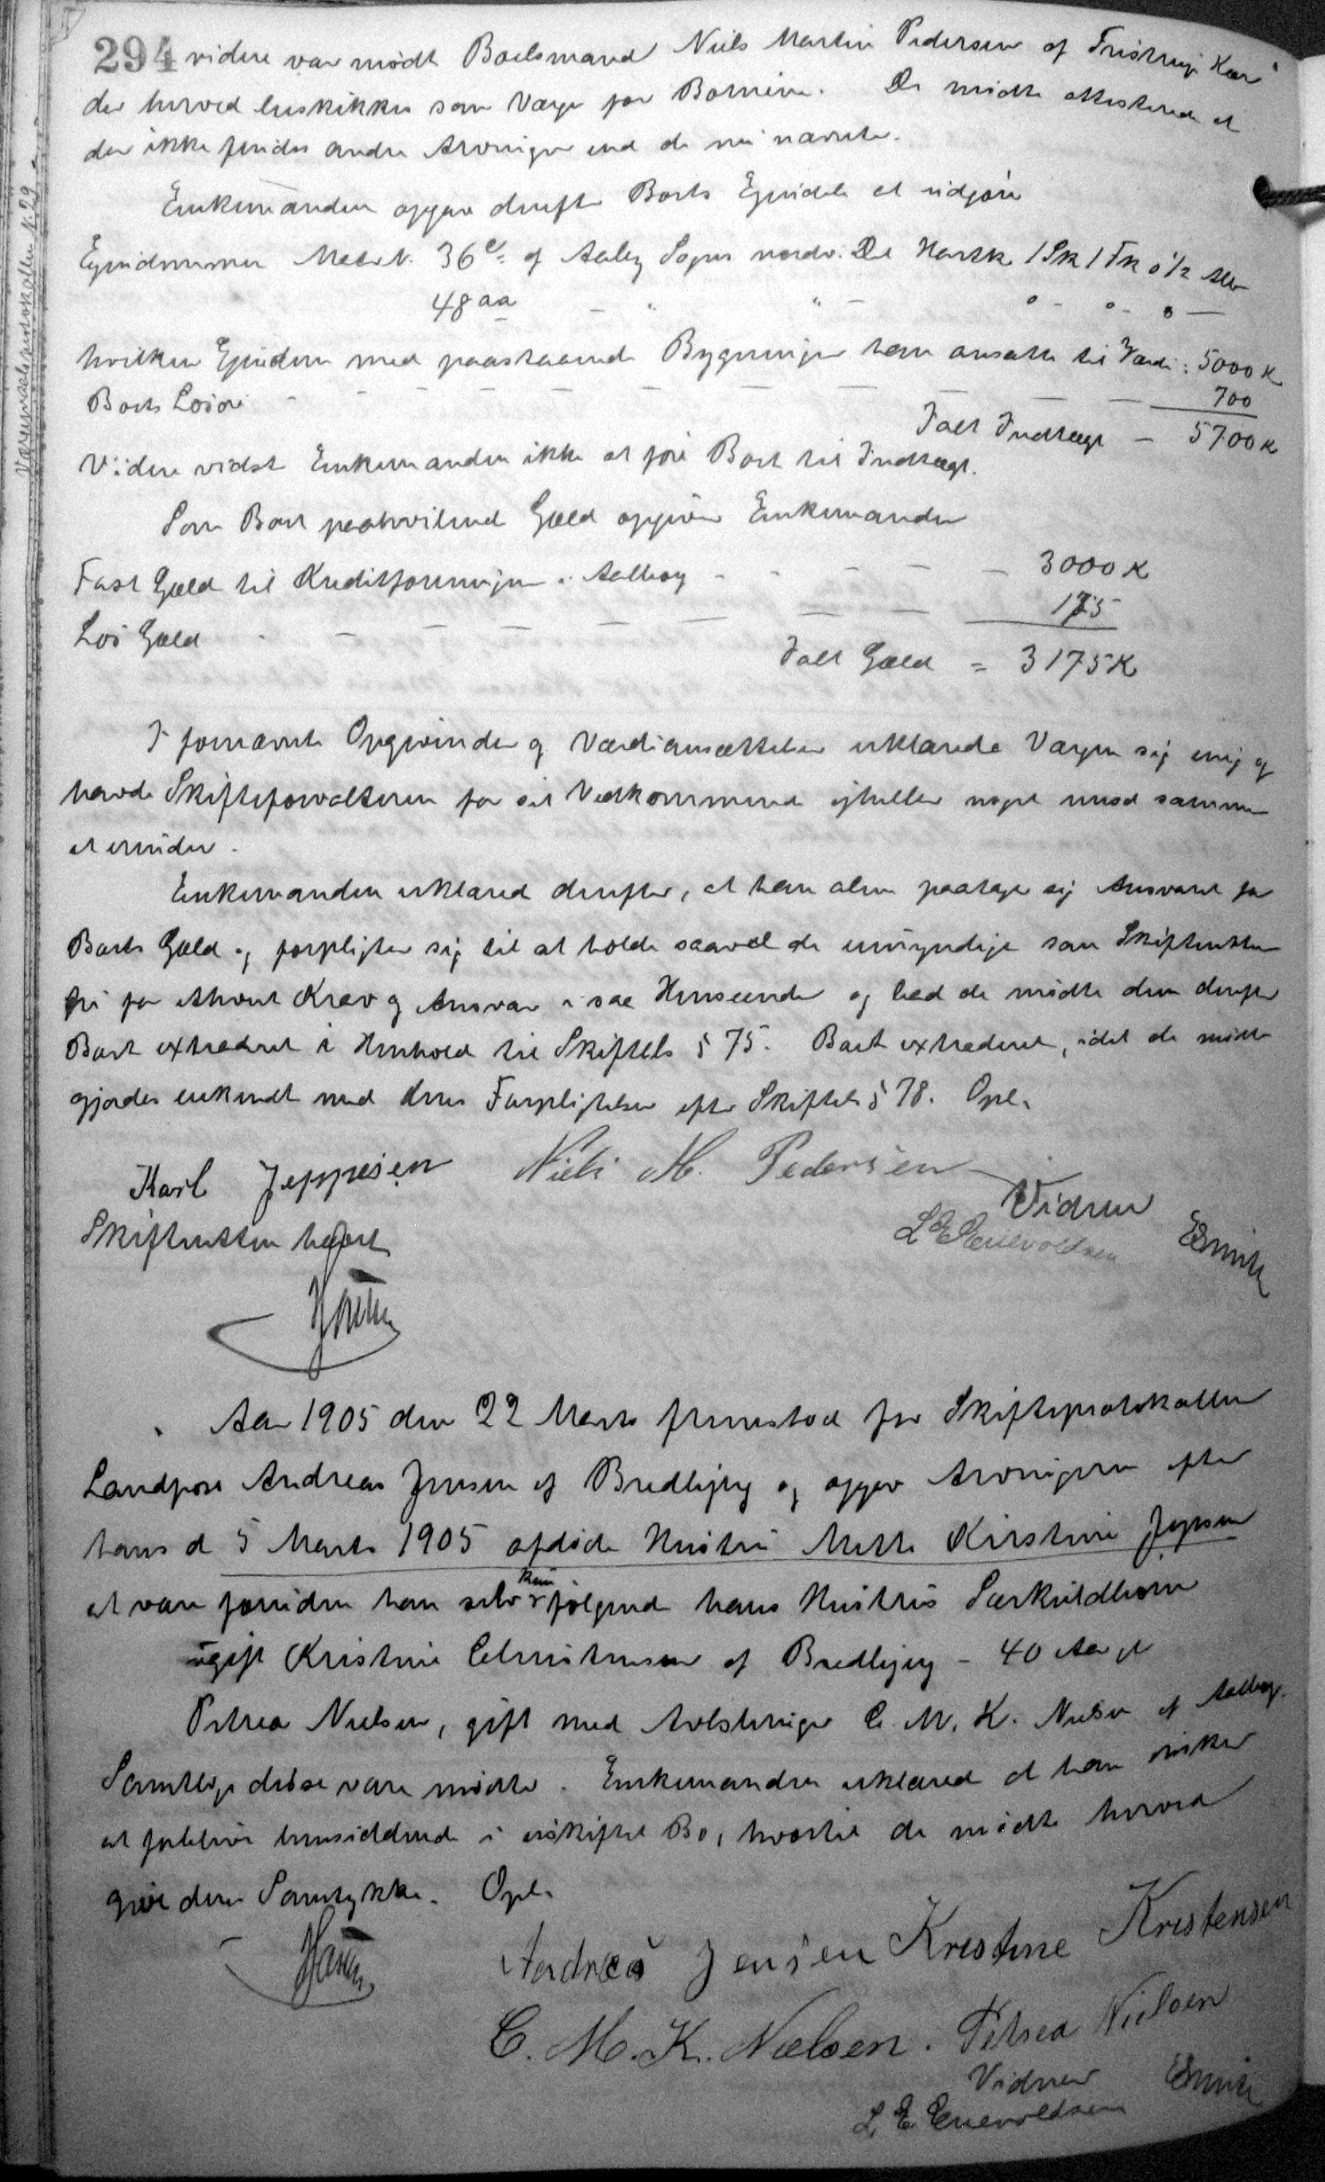 294 videre var mødt Boelsmand Niels Martin Pedersen af Fristrup Kær
der herved beskikkes som Værge for Børnene. De mødte attesterede at
der ikke findes andre Arvinger end de nu nævnte.
Enkemanden opgav derefter Boets Ejendele at udgjøre
Ejendommen Matr. N. 36 e af Aaby Sogns nordr. Del Hartk 1 Sk 1 Fk 0 1/2 Alb
48 aa - " " - 0 - 0 - 0 —
hvilken Ejendom med paastaaende Bygninger han ansatte til Værdi: 5000 K
Boets Løsøre - - - - - 700
Ialt Indtægt — 5700 K
Videre vidste Enkemanden ikke at føre Boet til Indtægt.
Som Boet paahvilende Gæld opgiver Enkemanden
Fast Gæld til Kreditforeningen i Aalborg - - - - 3000 K
Løs Gæld - - - - - 175
Ialt Gæld = 3175 K
I fornævnte Opgivender og Værdiansættelser erklærede Værgen sig enig og
havde Skifteforvalteren for sit Vedkommende ejheller noget mod samme
at erindre.
Enkemanden erklæred derefter, at han alene paatager sig Ansvaret for
Boets Gæld og forpligter sig til at holde saavel de umyndige som Skifteretten
fri for ethvert Krav og Ansvar i saa Henseende og bad de mødte dem derefter
Boet extraderet i Henhold til Skiftels § 75. Boet extraderet, idet de mødte
gjordes bekendt med deres Forpligtelser efter Skiftels § 78. Opl.
Karl Jeppesen Niels M. Pedersen
Vidner
Skifteretten hævet L E Enevoldsen ESmith
Aar 1905 den 22 Marts fremstod for Skifteprotokollen
Landpost Andreas Jensen af Bredbjerg og opgav Arvingerne efter
hans d 5 Marts 1905 afdøde Hustru Mette Kirstine Jepsen
kun
at være foruden han selv følgende hans Hustrus Særkuldbørn
ugift Kristine Christensen af Bredbjerg - 40 Aar gl
Petrea Nielsen, gift med Avlsbruger C. M. K. Nielsen af Aalborg.
Samtlige disse vare mødte. Enkemanden erklæred at han ønsker
at forblive hensiddende i uskiftet Bo, hvortil de mødte herved
give deres Samtykke. Opl.
Andreas Jensen Kristine Kristensen
C. M. K. Nielsen. Petrea Nielsen
Vidner
L. E. Enevoldsen ESmith